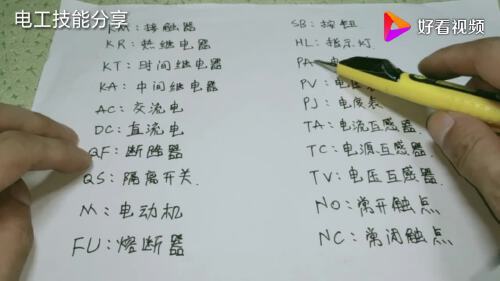 电工技能分享
好看视频
KM: 接触器
KR: 热继电器
KT: 时间继电器
KA: 中间继电器
AC: 交流电
DC: 直流电
QF: 断路器
QS: 隔离开关.
M: 电动机
FU: 熔断器
SB: 按钮
HL: 指示灯.
PA: 电
PV: 电压
PJ: 电度表
TA: 电流互感器
TC: 电源互感器
TV: 电压互感器.
NO: 常开触点
NC: 常闭触点.